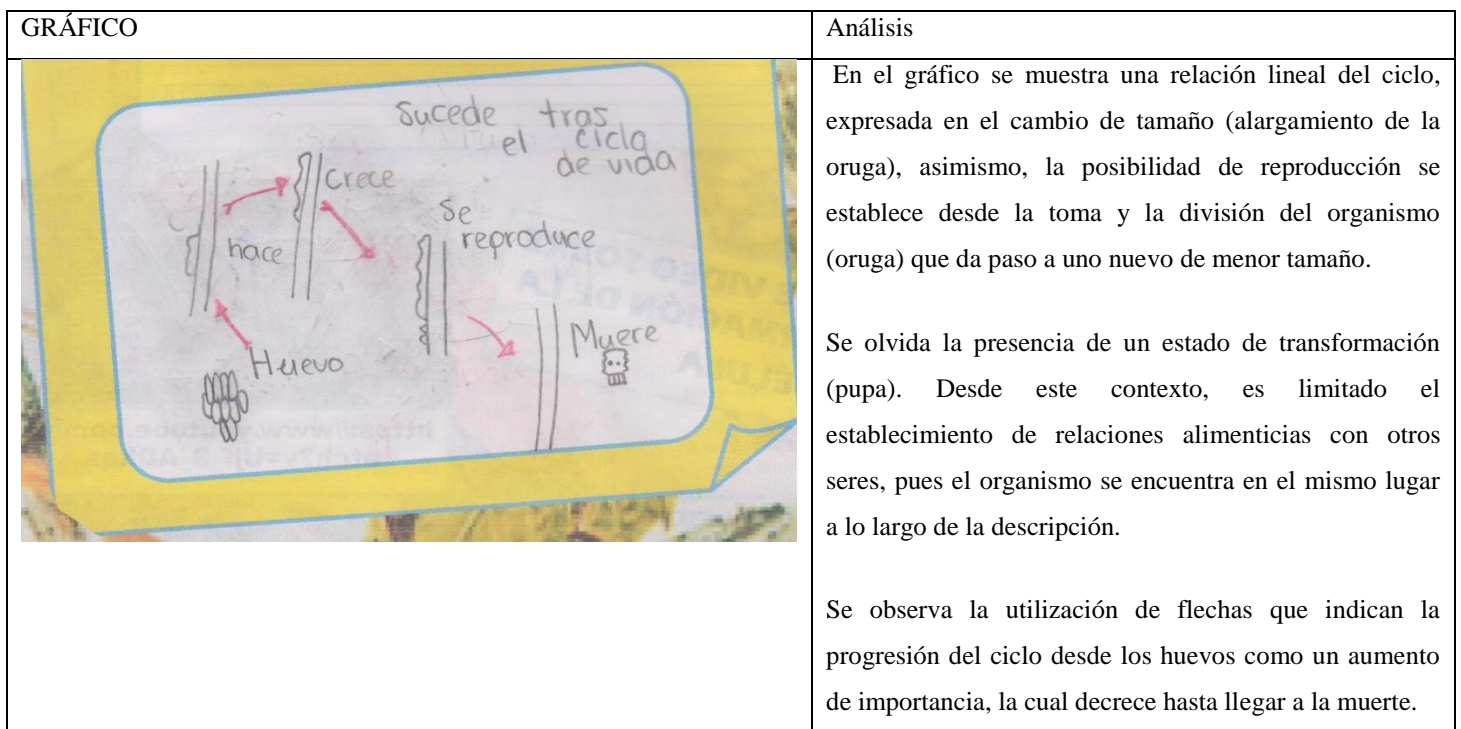 GRÁFICO
Análisis
Sucede tras
el ciclo
de vida
crece
nace
Se
reproduce
Muere
Huevo
En el gráfico se muestra una relación lineal del ciclo,
expresada en el cambio de tamaño (alargamiento de la
oruga), asimismo, la posibilidad de reproducción se
establece desde la toma y la división del organismo
(oruga) que da paso a uno nuevo de menor tamaño.
Se olvida la presencia de un estado de transformación
(pupa). Desde este contexto, es limitado el
establecimiento de relaciones alimenticias con otros
seres, pues el organismo se encuentra en el mismo lugar
a lo largo de la descripción.
Se observa la utilización de flechas que indican la
progresión del ciclo desde los huevos como un aumento
de importancia, la cual decrece hasta llegar a la muerte.